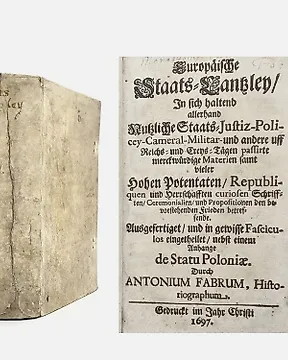 Europäische
Staats-Cantzley/
In sich haltend
allerhand
Nutzliche Staats-Justiz-Poli-
cey-Cameral-Militar-und andere uff
Reichs- und Creys-Tägen passirte
merckwürdige Materien samt
vieler
Hohen Potentaten/ Republi-
quen und Herrschafften curiosen Schriff-
ten/ Ceremonialien/ und Propositionen den be-
vorstehenden Frieden betref-
fende.
Ausgefertiget/ und in gewisse Fascicu-
los eingetheilet/ nebst einem
Anhange
de Statu Poloniæ.
Durch
ANTONIUM FABRUM, Histo-
riographum.
Gedruckt im Jahr Christi
1697.